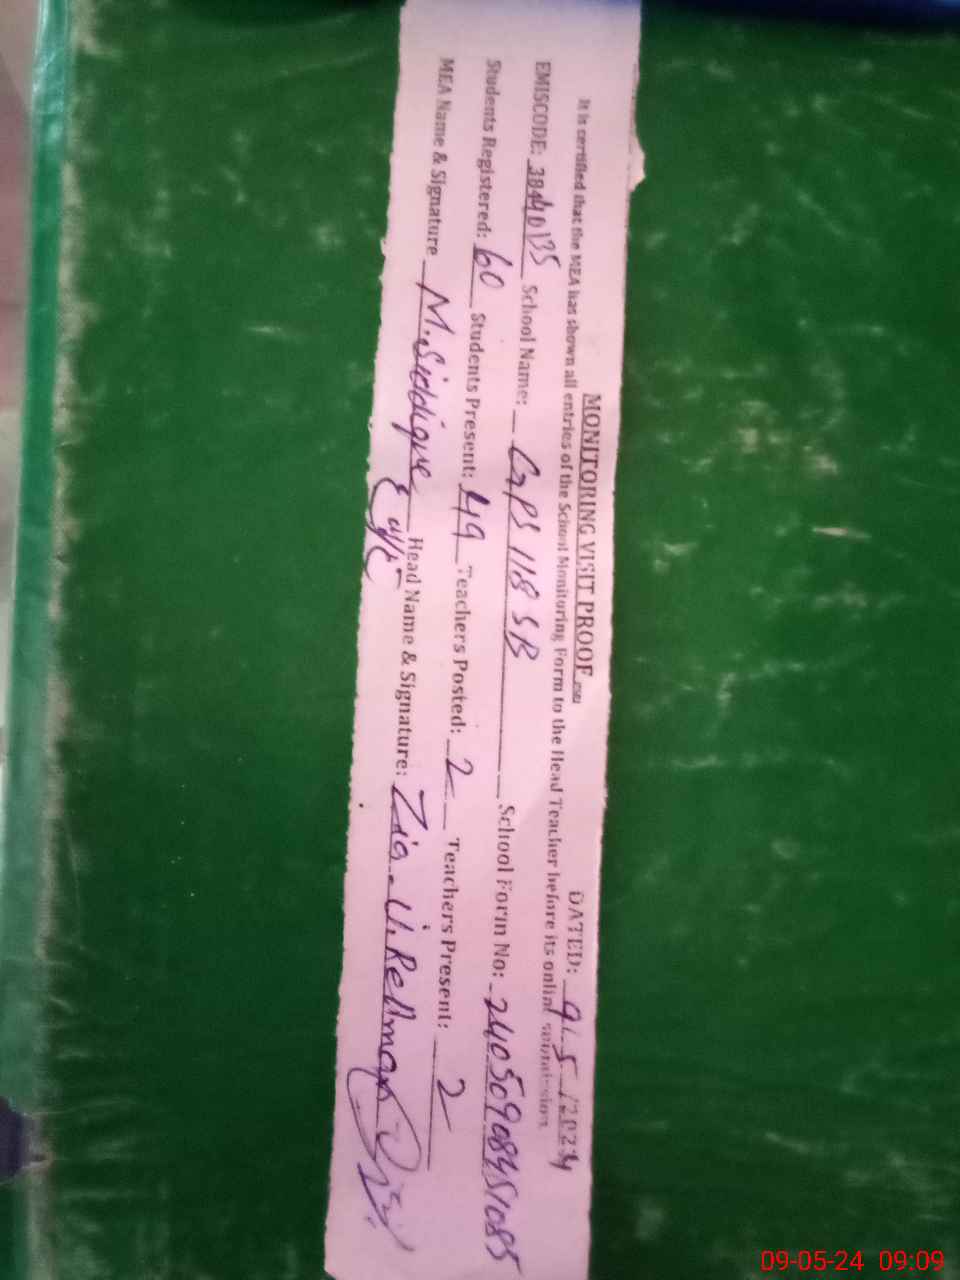 MONITORING VISIT PROOF DATED: 9/5/2024
It is certified that the MEA has shown all entries of the School Monitoring Form to the Head Teacher before its online submission.
EMISCODE: 38440135 School Name: GPS 118 SB School Form No: 24050908451085
Students Registered: 60 Students Present: 49 Teachers Posted: 2 Teachers Present: 2
MEA Name & Signature M. Siddique Head Name & Signature: Zia-U-Rehman
09-05-24 09:09